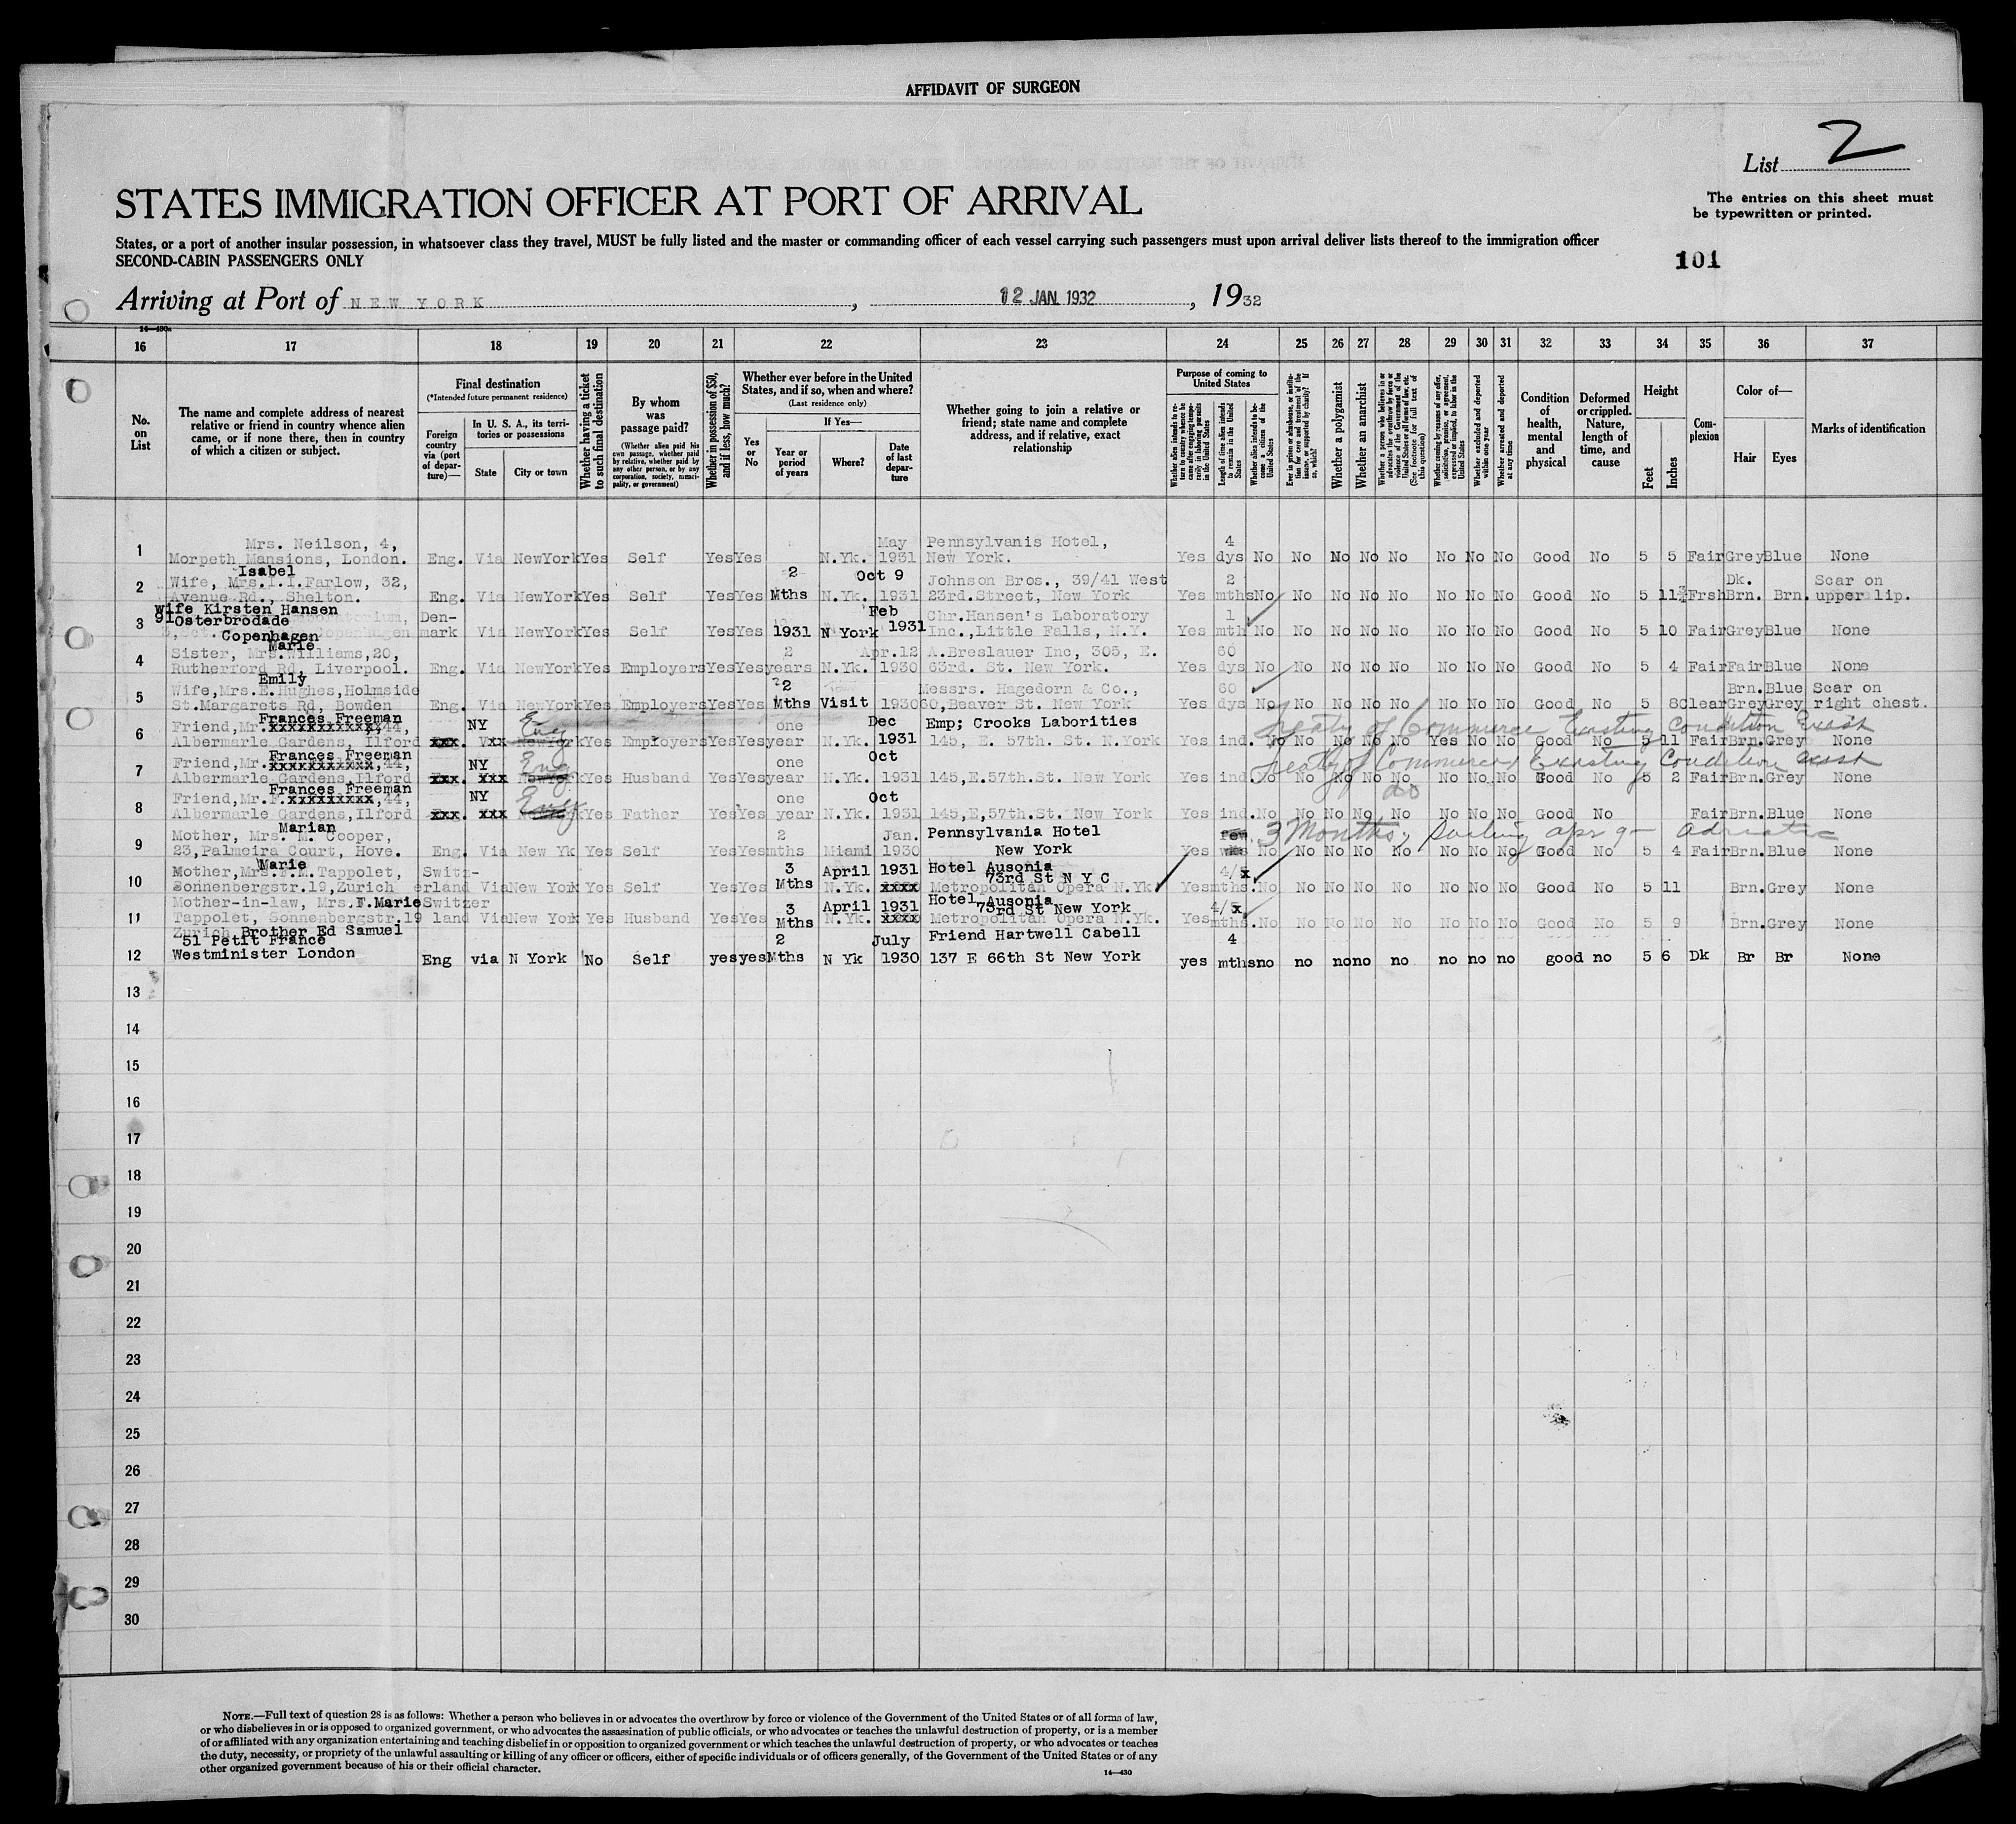 AFFIDAVIT OF SURGEON
List 2
STATES IMMIGRATION OFFICER AT PORT OF ARRIVAL
The entries on this sheet must
be typewritten or printed.
States, or a port of another insular possession, in whatsoever class they travel, MUST be fully listed and the master or commanding officer of each vessel carrying such passengers must upon arrival deliver lists thereof to the immigration officer
SECOND-CABIN PASSENGERS ONLY
101
Arriving at Port of NEW YORK, 12 JAN 1932, 1932
14—430a
16 17 18 19 20 21 22 23 24 25 26 27 28 29 30 31 32 33 34 35 36 37
No. on List
The name and complete address of nearest
relative or friend in country whence alien
came, or if none there, then in country
of which a citizen or subject.
Final destination
(*Intended future permanent residence)
Foreign country via (port of departure)—
In U. S. A., its territories or possessions
State
City or town
Whether having a ticket to such final destination
By whom was passage paid?
(Whether alien paid his own passage, whether paid by relative, whether paid by any other person, or by any corporation, society, municipality, or government)
Whether in possession of $50, and if less, how much?
Whether ever before in the United States, and if so, when and where?
(Last residence only)
Yes or No
If Yes—
Year or period of years
Where?
Date of last departure
Whether going to join a relative or
friend; state name and complete
address, and if relative, exact
relationship
Purpose of coming to United States
Whether alien intends to return to country whence he came after engaging temporarily in laboring pursuits in the United States
Length of time alien intends to remain in the United States
Whether alien intends to become a citizen of the United States
Ever in prison or almshouse, or institution for care and treatment of the insane, or supported by charity? If so, which?
Whether a polygamist
Whether an anarchist
Whether a person who believes in or advocates the overthrow by force or violence of the Government of the United States or all forms of law, etc. (See footnote for full text of this question)
Whether coming by reasons of any offer, solicitation, promise, or agreement, expressed or implied, to labor in the United States
Whether excluded and deported within one year
Whether arrested and deported at any time
Condition of health, mental and physical
Deformed or crippled. Nature, length of time, and cause
Height
Feet
Inches
Complexion
Color of—
Hair
Eyes
Marks of identification
Mrs. Neilson, 4, May Pennsylvanis Hotel, 4
1 Morpeth Mansions, London. Eng. Via NewYork Yes Self Yes Yes N.Yk. 1931 New York. Yes dys No No No No No No No No Good No 5 5 Fair Grey Blue None
Isabel
Wife, Mrs.I.I.Farlow, 32, 2 Oct 9 Johnson Bros., 39/41 West 2 Dk. Scar on
2 Avenue Rd., Shelton. Eng. Via NewYork Yes Self Yes Yes Mths N.Yk. 1931 23rd.Street, New York Yes mths No No No No No No No No Good No 5 11¾ Frsh Brn. Brn. upper lip.
wife Kirsten Hansen
91 Osterbrodade Den- Feb Chr.Hansen's Laboratory 1
3 Copenhagen mark Via NewYork Yes Self Yes Yes 1931 N York 1931 Inc.,Little Falls, N.Y. Yes mth No No No No No No No No Good No 5 10 Fair Grey Blue None
Marie
Sister, Mrs.Williams,20, 2 Apr.12 A.Breslauer Inc, 305, E. 60
4 Rutherford Rd, Liverpool. Eng. Via NewYork Yes Employers Yes Yes years N.Yk. 1930 63rd. St. New York. Yes dys No No No No No No No No Good No 5 4 Fair Fair Blue None
Emily
Wife,Mrs.E.Hughes,Holmside 2 Messrs. Hagedorn & Co., 60 Brn. Blue Scar on
5 St.Margarets Rd, Bowden Eng. Via NewYork Yes Employers Yes Yes Mths Visit 1930 60,Beaver St. New York Yes dys No No No No No No No No Good No 5 8 Clear Grey Grey right chest.
Frances Freeman
Friend,Mr.xxxxxxxxxxx,44, NY Eng one Dec Emp; Crooks Laborities Treaty of Commerce Existing Condition Exist
6 Albermarle Gardens, Ilford xxx. Vxx NewYork Yes Employers Yes Yes year N.Yk. 1931 145, E. 57th. St. N.York Yes ind. No No No No No Yes No No Good No 5 11 Fair Brn. Grey None
Frances Freeman
Friend,Mr.xxxxxxxxxxx,44, NY Eng one Oct Treaty of Commerce, Existing Condition Exist
7 Albermarle Gardens,Ilford xxx. xxx NewYork Yes Husband Yes Yes year N.Yk. 1931 145,E.57th.St. New York Yes ind. No No No No No No No No Good No 5 2 Fair Brn. Grey None
Frances Freeman
Friend,Mr.F.xxxxxxxxx,44, NY Eng one Oct do
8 Albermarle Gardens,Ilford xxx. xxx Yes Father Yes Yes year N.Yk. 1931 145,E,57th.St. New York Yes ind. No No No No No No No No Good No Fair Brn. Blue None
Marian
Mother, Mrs. M. Cooper, 2 Jan. Pennsylvania Hotel few 3 Months, Sailing Apr 9 - Adriatic
9 23,Palmeira Court, Hove. Eng. Via New Yk Yes Self Yes Yes mths Miami 1930 New York Yes wks No No No No No No No No Good No 5 4 Fair Brn. Blue None
Marie
Mother,Mrs.F.M.Tappolet, Switz- 3 April 1931 Hotel Ausonia 4/x
10 Sonnenbergstr.19,Zurich erland Via New York Yes Self Yes Yes Mths N.Yk. xxxx 73rd St N Y C Metropolitan Opera N.Yk Yes mths. No No No No No No No No Good No 5 11 Brn. Grey None
Mother-in-law, Mrs.F.Marie Switzer 3 April 1931 Hotel Ausonia 4/x
11 Tappolet, Sonnenbergstr.19 land Via New York Yes Husband Yes Yes Mths N.Yk. xxxx 73rd St New York Metropolitan Opera N.Yk. Yes mths. No No No No No No No No Good No 5 9 Brn. Grey None
Zurich Brother Ed Samuel
51 Petit France 2 July Friend Hartwell Cabell 4
12 Westminister London Eng via N York No Self yes yes Mths N Yk 1930 137 E 66th St New York yes mths no no no no no no no no good no 5 6 Dk Br Br None
13
14
15
16
17
18
19
20
21
22
23
24
25
26
27
28
29
30
NOTE.—Full text of question 28 is as follows: Whether a person who believes in or advocates the overthrow by force or violence of the Government of the United States or of all forms of law,
or who disbelieves in or is opposed to organized government, or who advocates the assassination of public officials, or who advocates or teaches the unlawful destruction of property, or is a member
of or affiliated with any organization entertaining and teaching disbelief in or opposition to organized government or which teaches the unlawful destruction of property, or who advocates or teaches
the duty, necessity, or propriety of the unlawful assaulting or killing of any officer or officers, either of specific individuals or of officers generally, of the Government of the United States or of any
other organized government because of his or their official character.
14—430